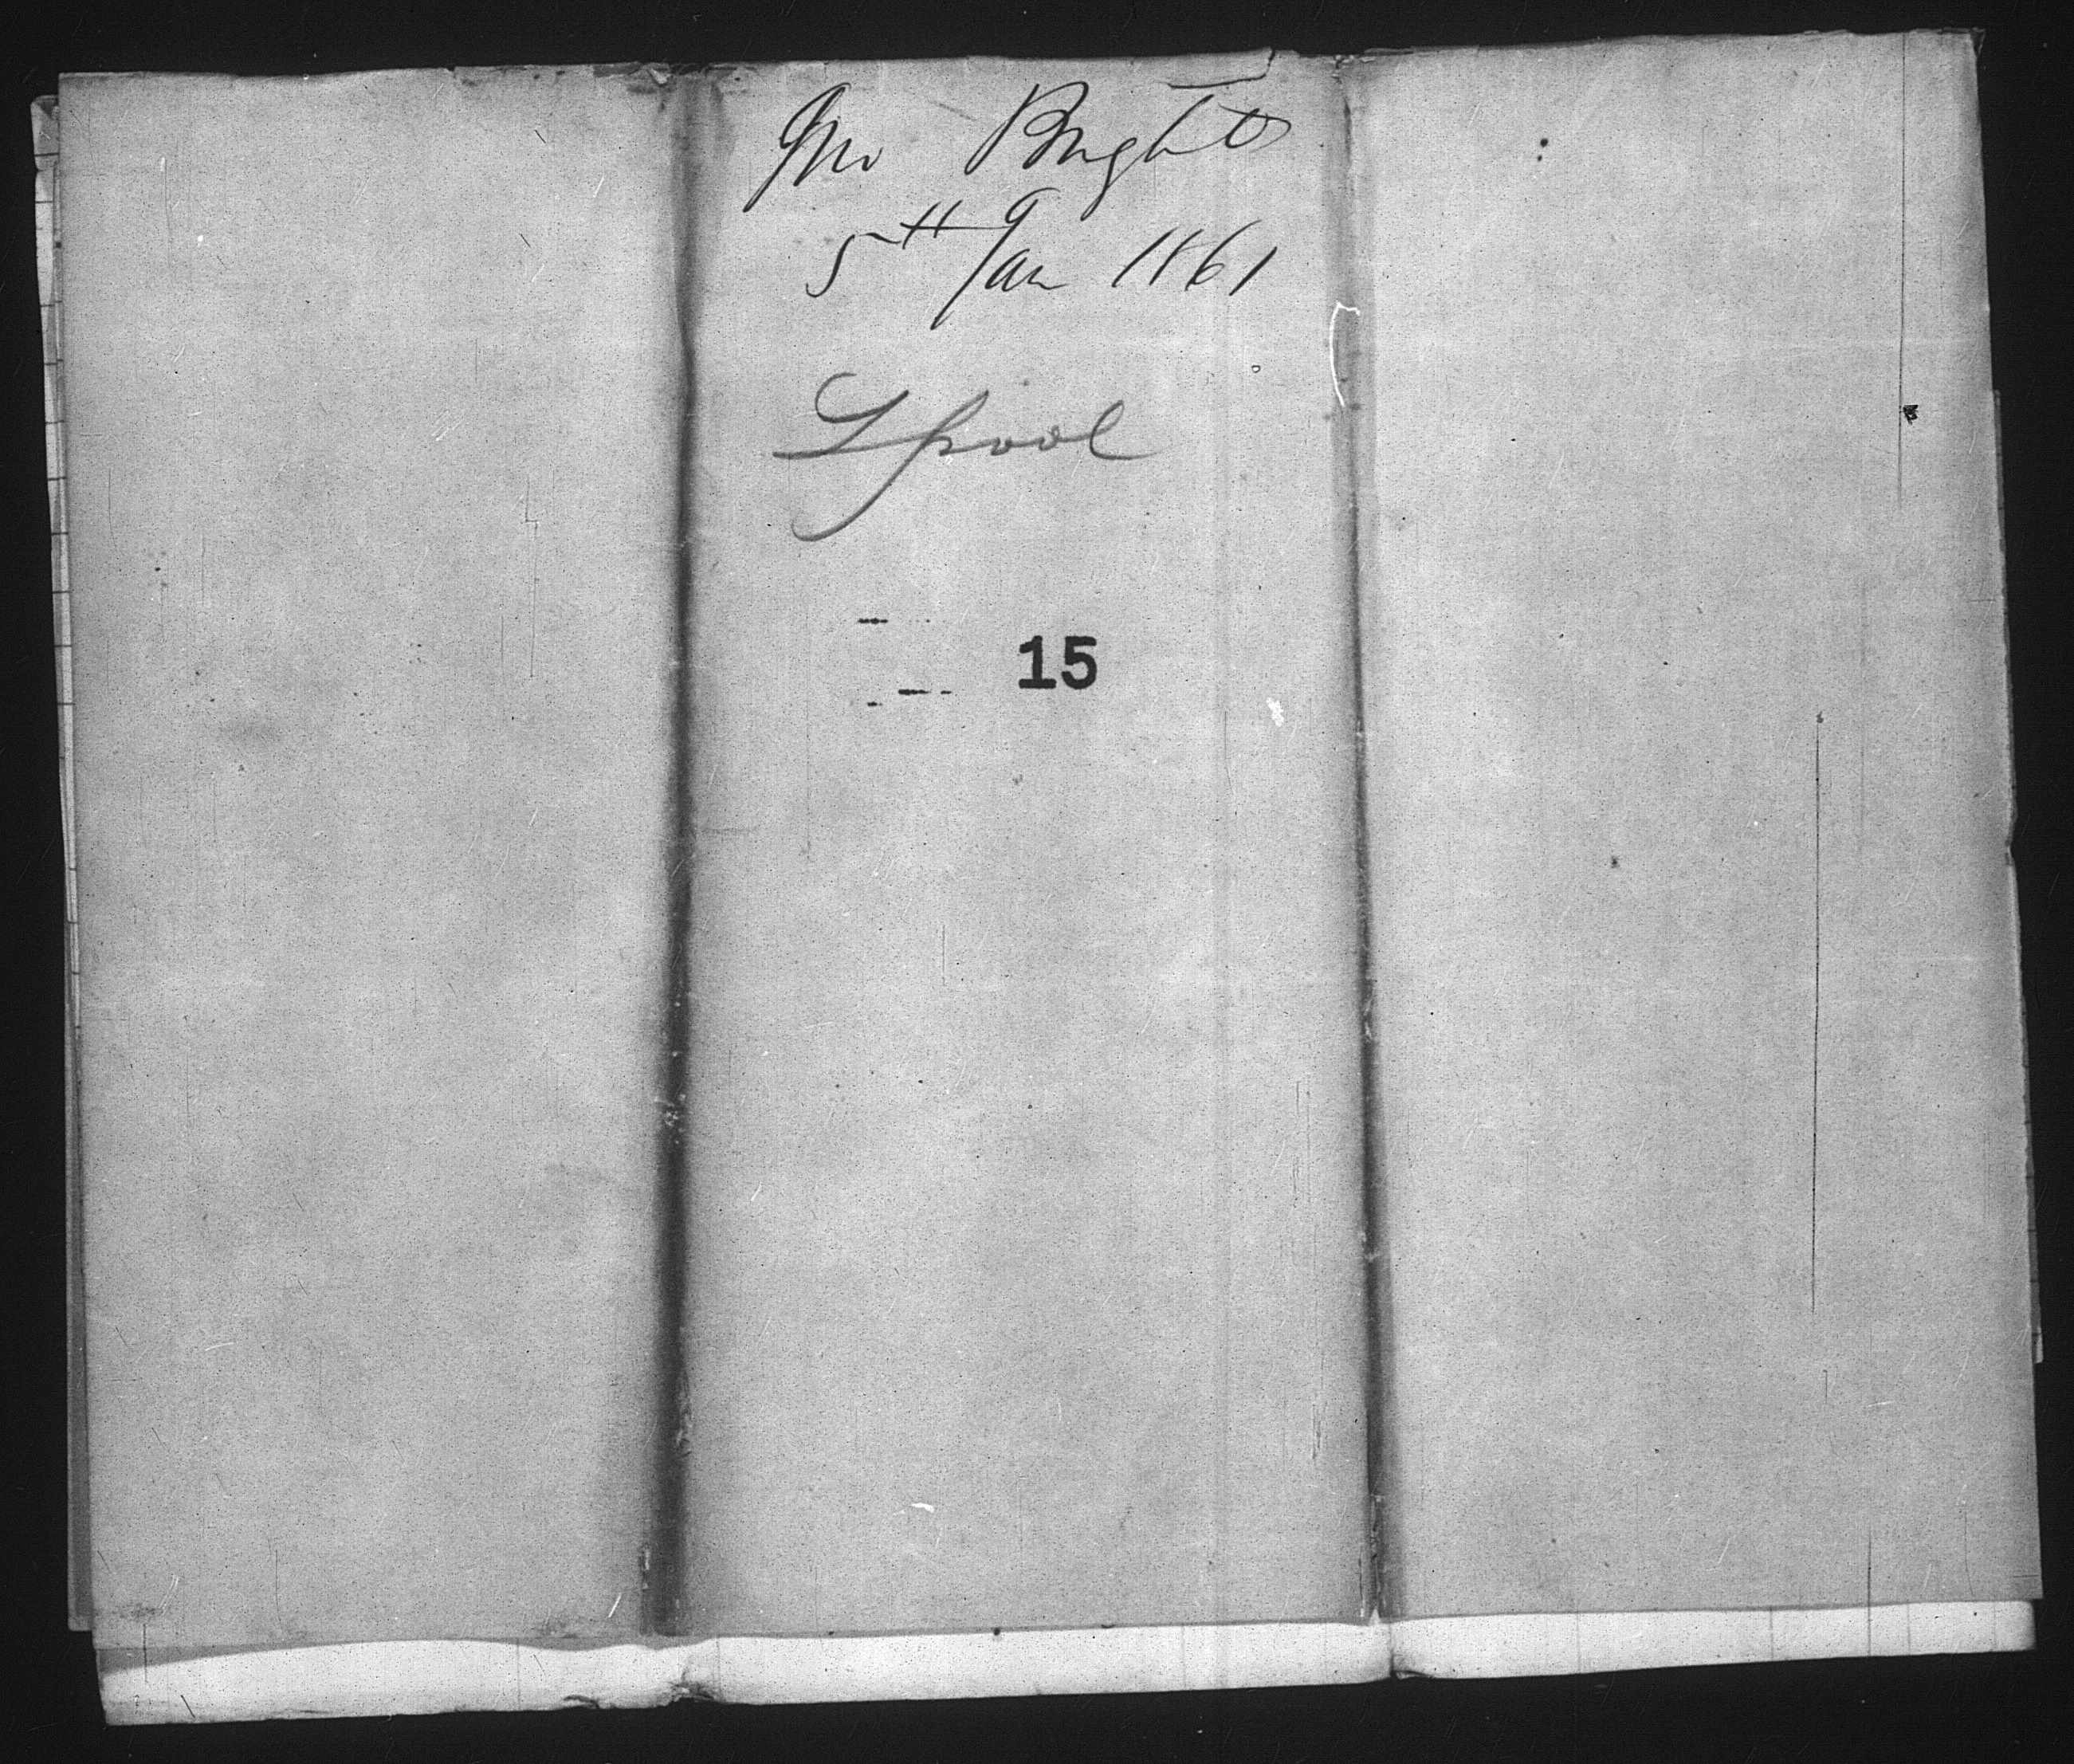 Jno Bright
5th Jan 1861
Lpool
15